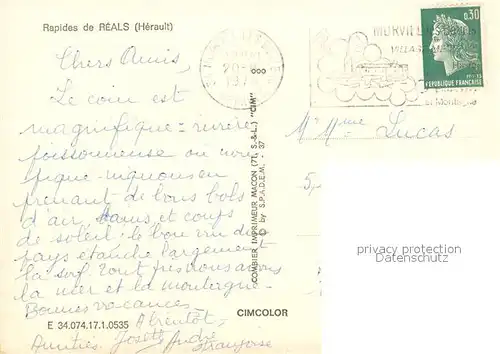 Rapides de RÉALS (Hérault)
Chers Amis,
Le coin est
magnifique = rivière
poissonneuse ou nous
pique-niquons en
prenant de bons bols
d'air, bains et coups
de soleil; le bon vin du
pays étanche largement
la soif. Tout près nous avons
la mer et la montagne.
Bonnes vacances -
A bientôt -
Amitiés Josette André
Françoise
E 34.074.17.1.0535
CIMCOLOR
COMBIER IMPRIMEUR MACON (71, S.-&-L.) "CIM"
© by S.P.A.D.E.M. 37
20
0,30
REPUBLIQUE FRANÇAISE
et Montagne
Mr Mme Lucas
5,
privacy protection